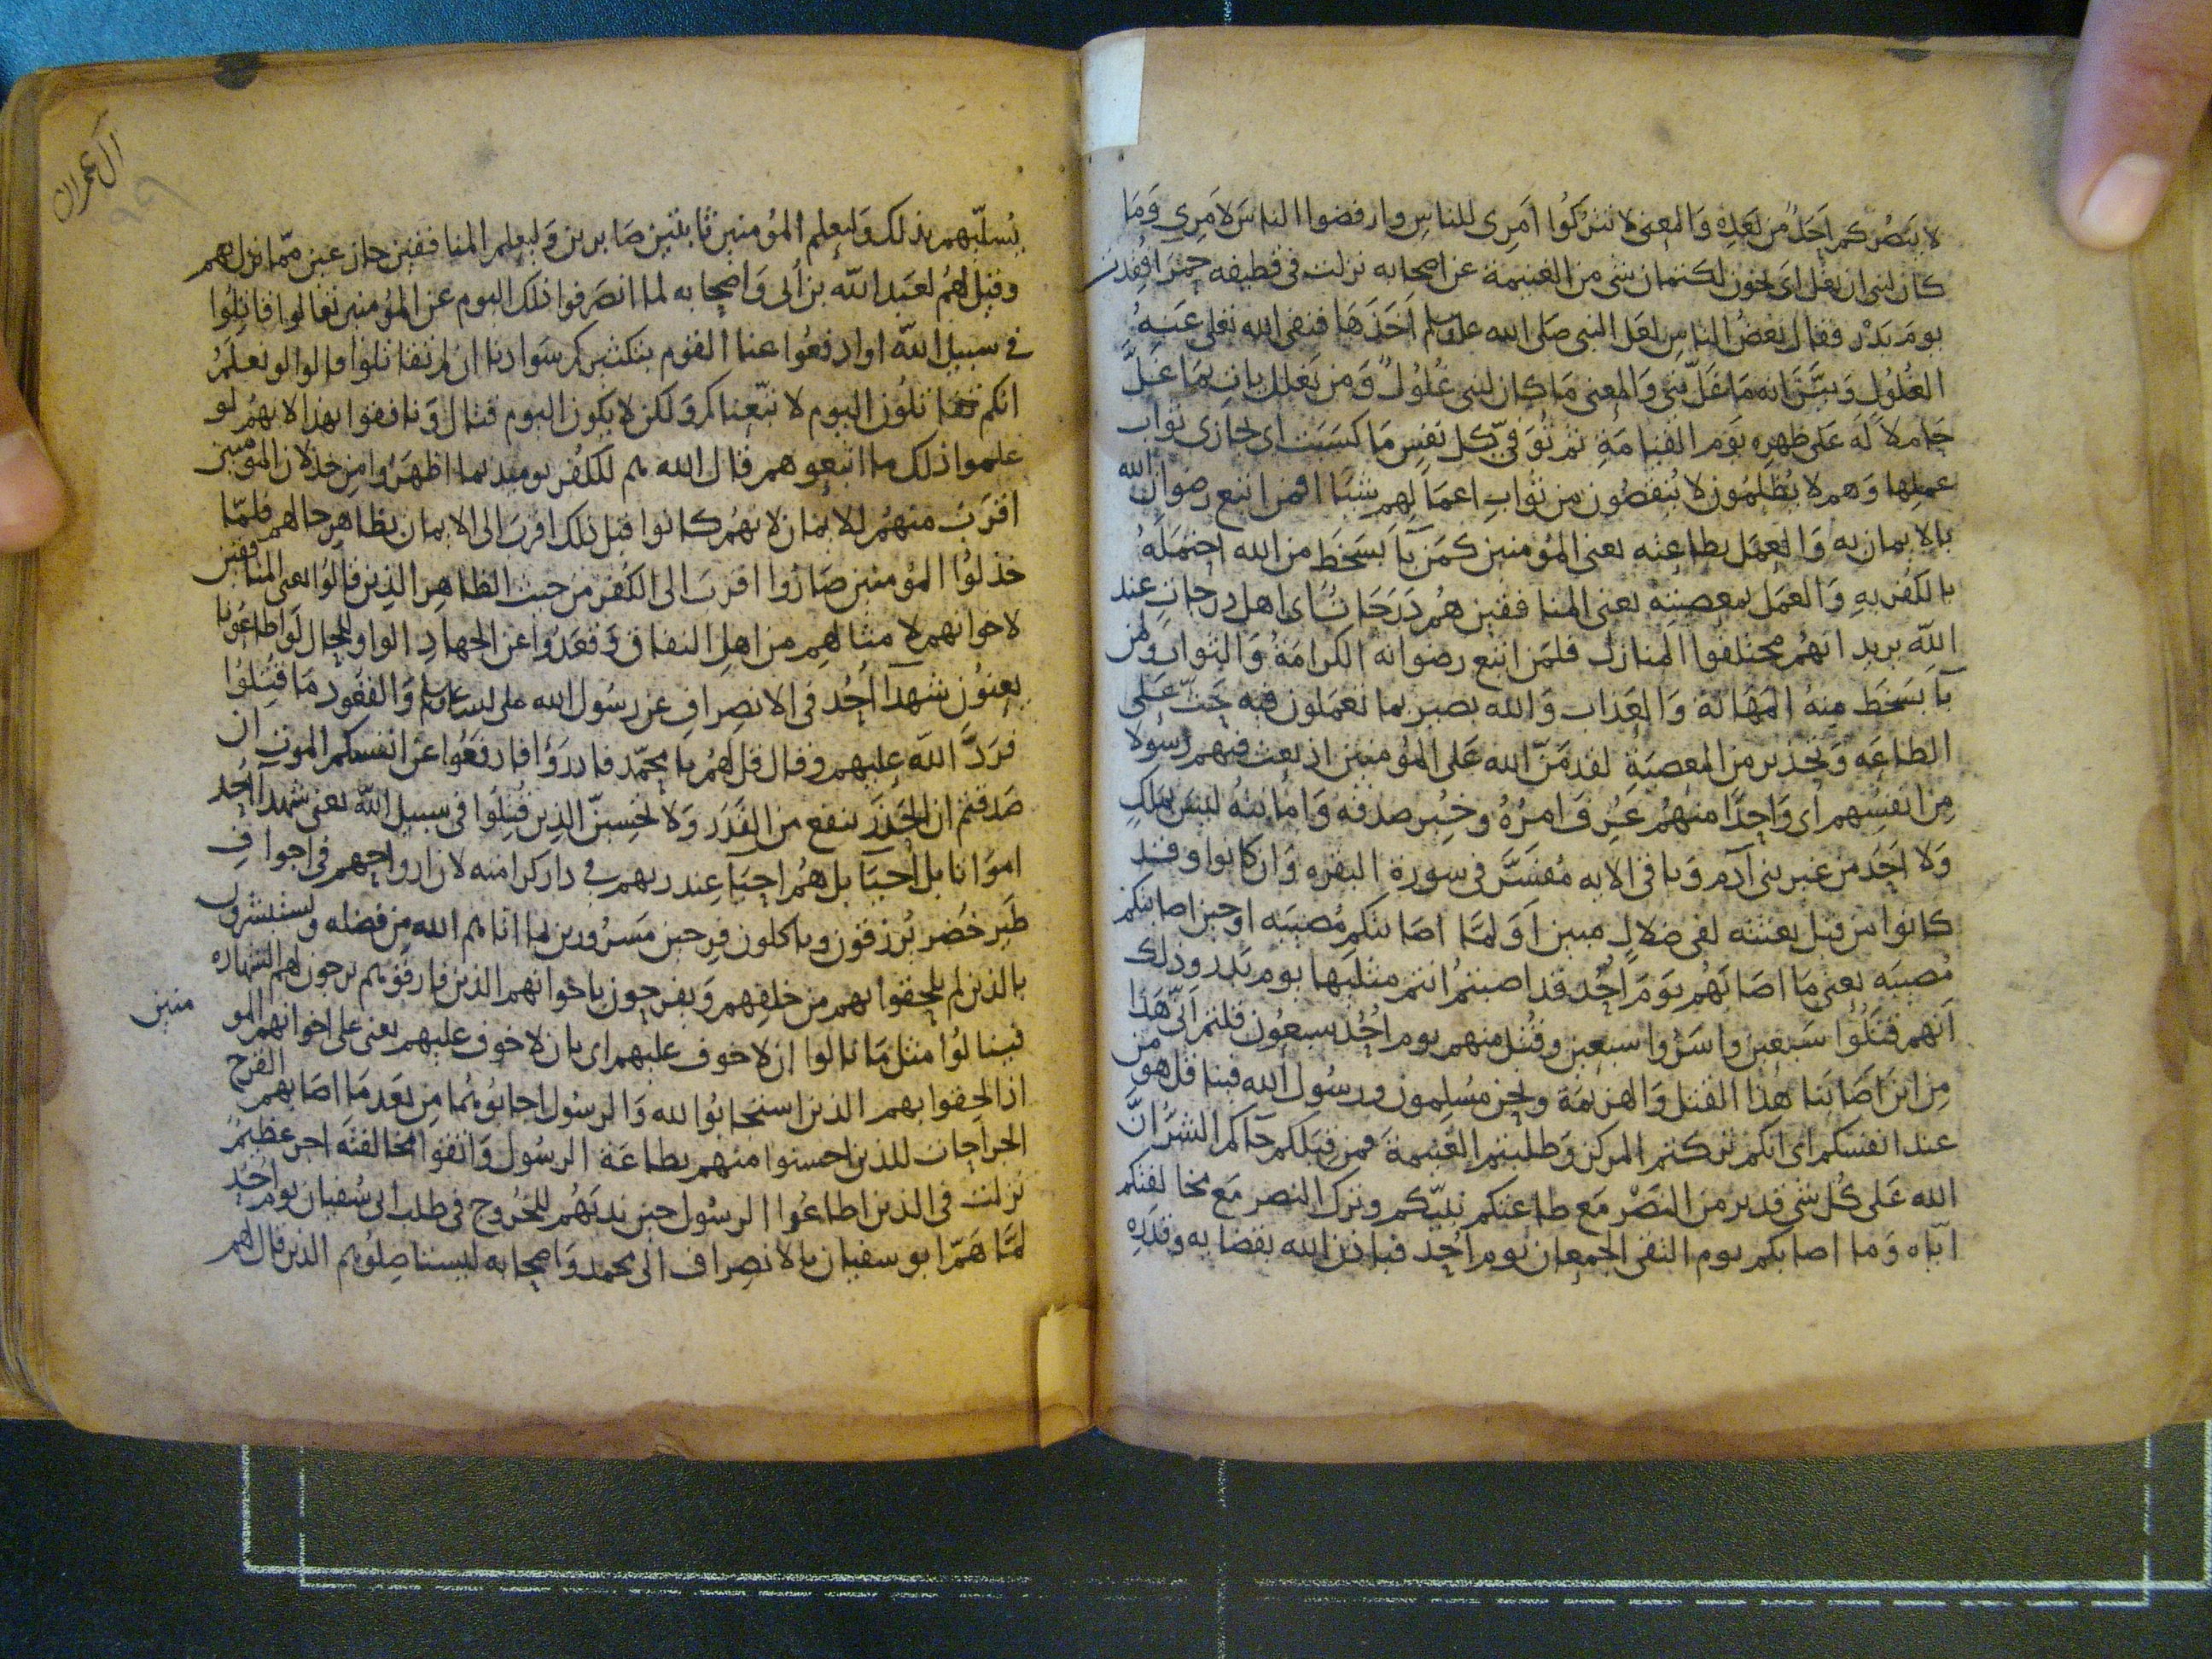 لا ينصركم احد من بعده والمعنى لا تتركوا امرى للناس وارفضوا الناس لامرى وما
كان لنبى ان يغل اى يخون لكتمان شى من الغنيمة عن اصحابه نزلت فى قطيفه حمرا فقدت
يوم بدر فقال بعض الناس لعل النبى صلى الله عليه وسلم اخذها فنفى الله تعلى عنه
الغلول وبين انه ما غل نبى والمعنى ما كان لنبى غلول ومن يغلل يات بما غل
حاملا له على ظهره يوم القيامة ثم توفى كل نفس ما كسبت اى تجازى ثواب
عملها وهم لا يظلمون لا ينقصون من ثواب اعمالهم شيا افمن اتبع رضوان الله
بالايمان به والعمل بطاعته يعنى المؤمنين كمن بآ بسخط من الله احتمله
بالكفر به والعمل بمعصيته يعنى المنافقين هم درجات اى اهل درجات عند
الله يريد انهم مختلفوا المنازل فلمن اتبع رضوانه الكرامة والثواب ولمن
بآ بسخط منه المهانة والعذاب والله بصير بما تعملون فيه حث على
الطاعه وتحذير من المعصية لقد من الله على المؤمنين اذ بعث فيهم رسولا
من انفسهم اى واحدا منهم عرف امره وخبر صدقه وامانته ليس بملك
ولا احد من غير بنى آدم وباقى الايه مفسر فى سورة البقره وان كانوا وقد
كانوا من قبل بعثته لفى ضلال مبين اولما اصابتكم مصيبه اوحين اصابتكم
مصيبه يعنى ما اصابهم يوم احد قد اصبتم انتم مثليها يوم بدر وذلك
انهم قتلوا سبعين واسروا سبعين وقتل منهم يوم احد سبعون قلتم انى هذا
من اين اصابنا هذا القتل والهزيمة ونحن مسلمون ورسول الله فينا قل هو من
عند انفسكم اى انكم تركتم المركز وطلبتم الغنيمة فمن قبلكم جآكم الشر ان
الله على كل شى قدير من النصر مع طاعتكم نبيكم وترك النصر مع مخالفتكم
اياه وما اصابكم يوم التقى الجمعان يوم احد فباذن الله بقضايه وقدره
آل عمران
يسليهم بذلك وليعلم المؤمنين ثابتين صابرين وليعلم المنافقين جازعين مما نزل بهم
وقيل لهم لعبد الله بن ابى واصحابه لما انصرفوا ذلك اليوم عن المؤمنين تعالوا قاتلوا
فى سبيل الله او ادفعوا عنا القوم بتكثيركم سوادنا ان لم تقاتلوا قالوا لو نعلم
انكم تقاتلون اليوم لاتبعناكم ولكن لا يكون اليوم قتال ونافقوا بهذا لانهم لو
علموا ذلك ما اتبعوهم قال الله هم للكفر يوميذ بما اظهروا من خذلان المؤمنين
اقرب منهم للايمان لانهم كانوا قبل ذلك اقرب الى الايمان بظاهر حالهم فلما
خذلوا المؤمنين صاروا اقرب الى الكفر من حيث الظاهر الذين قالوا يعنى المنافقين
لاخوانهم لامثالهم من اهل النفاق وقعدوا عن الجهاد الواو للحال لو اطاعونا
يعنون شهدآ احد فى الانصراف عن رسول الله والقعود ما قتلوا
فرد الله عليهم وقال قل لهم يا محمد فادرؤا فادفعوا عن انفسكم الموت ان
صدقتم ان الحذر ينفع من القدر ولا تحسبن الذين قتلوا فى سبيل الله يعنى شهدآ احد
امواتا بل احيآ بل هم احيآ عند ربهم فى دار كرامته لان ارواحهم فى اجواف
طير خضر يرزقون وياكلون فرحين مسرورين بما اتاهم الله من فضله ويستبشرون
بالذين لم يلحقوا بهم من خلفهم ويفرحون باخوانهم الذين فارقوهم يرجون لهم الشهاده
فينالوا مثل ما نالوا ان لا خوف عليهم اى بان لا خوف عليهم يعنى على اخوانهم المو
منين
اذا لحقوا بهم الذين استجابوا لله والرسول اجابوهما من بعد ما اصابهم القرح
الجراحات للذين احسنوا منهم بطاعة الرسول واتقوا مخالفته اجر عظيم
نزلت فى الذين اطاعوا الرسول حين ندبهم للخروج فى طلب ابى سفيان يوم احد
لما هم ابو سفيان بالانصراف الى محمد واصحابه ليستاصلوهم الذين قال لهم